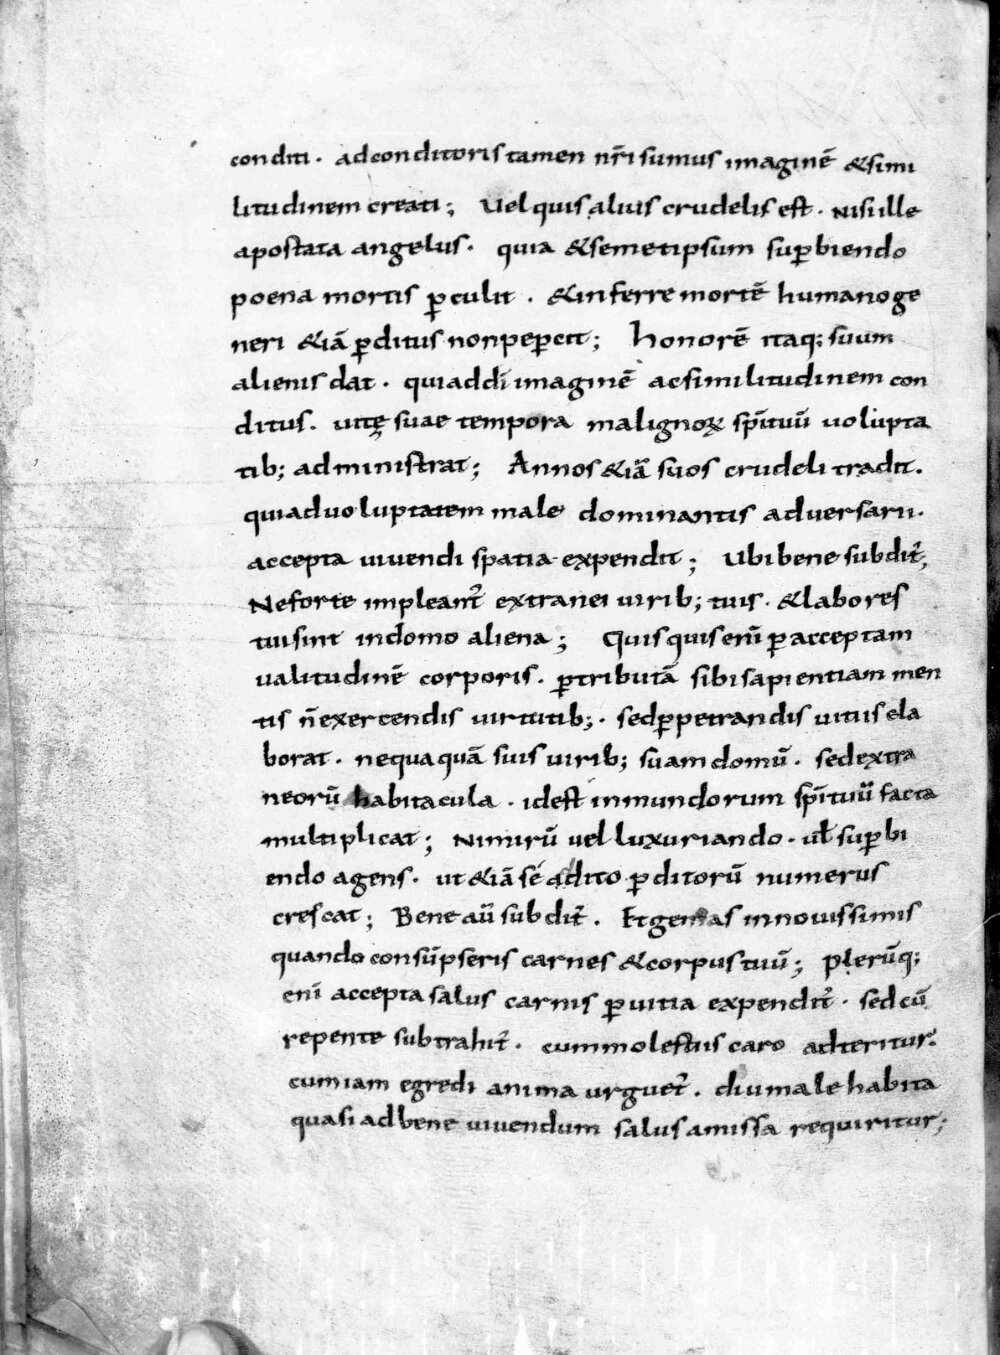 conditi . ad conditoris tamen nr̄i sumus imaginē & simi
litudinem creati ; Uel quis alius crudelis est . nisi ille
apostata angelus . quia & semetipsum sup̱biendo
poena mortis p̱culit . & inferre mortē humano ge
neri &iā p̱ditus non pep̱cit ; Honorē itaq; suum
alienis dat . qui ad dī imaginē ac similitudinem con
ditus . uitę suae tempora malignoꝝ sp̄ituū uolupta
tib; administrat ; Annos &iā suos crudeli tradit .
qui ad uoluptatem male dominantis aduersarii .
accepta uiuendi spatia expendit ; Ubi bene subdit̄,
Ne forte impleant̄ extranei uirib; tuis . & labores
tui sint in domo aliena ; Quisquis enī p̱ acceptam
ualitudinē corporis . p̱ tributā sibi sapientiam men
tis n̄ exercendis uirtutib; . sed p̱petrandis uitiis ela
borat . nequaquā suis uirib; suam domū . sed extra
neorū habitacula . idest inmundorum sp̄ituū facta
multiplicat ; Nimirū uel luxuriando . ul̄ sup̱bi
endo agens . ut &iā se adito p̱ditorū numerus
crescat ; Bene aū subdit̄ . Et gemas in nouissimis
quando consūpseris carnes & corpus tuū ; Plerūq;
enī accepta salus carnis p̱ uitia expendit̄ . sed cū
repente subtrahit̄ . cum molestiis caro adteritur .
cum iam egredi anima urguet̄ . diu male habita
quasi ad bene uiuendum salus amissa requiritur ;